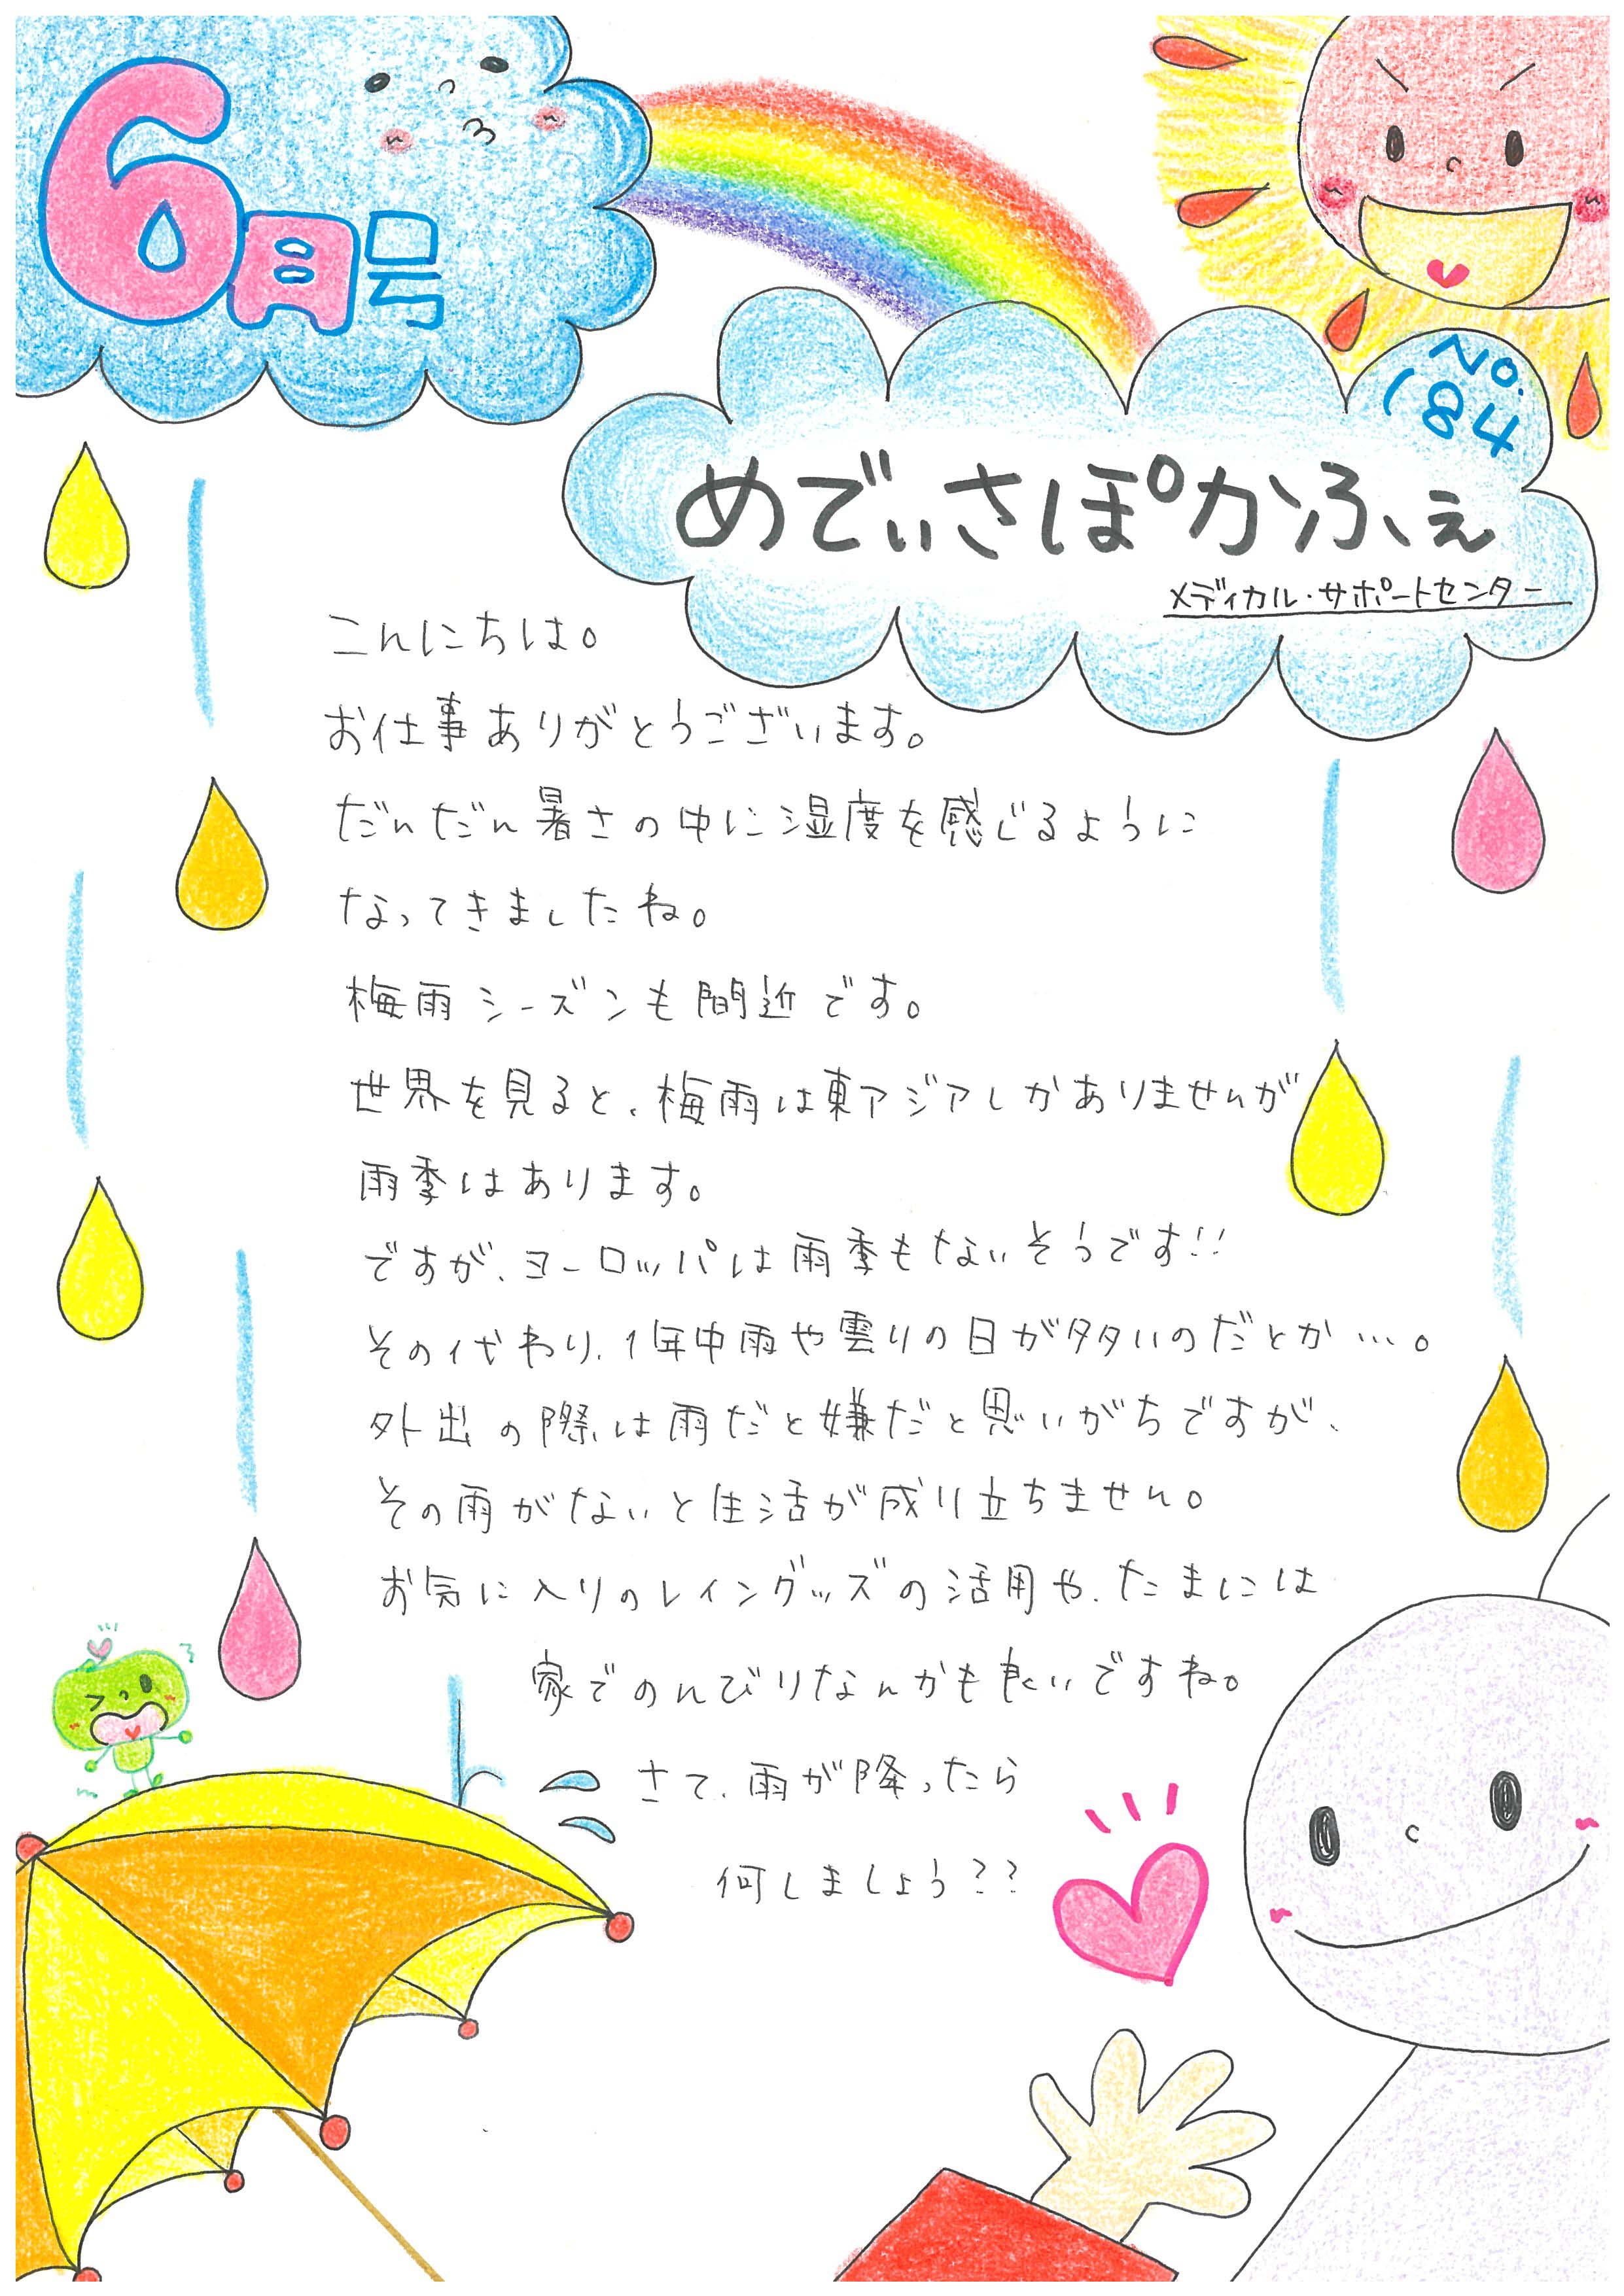 6月号
No.184
めでぃさぽかふぇ
メディカル・サポートセンター
こんにちは。
お仕事ありがとうございます。
だんだん暑さの中に湿度を感じるように
なってきましたね。
梅雨シーズンも間近です。
世界を見ると、梅雨は東アジアしかありませんが
雨季はあります。
ですが、ヨーロッパは雨季もないそうです!!
その代わり、1年中雨や雲りの日が多いのだとか…。
外出の際は雨だと嫌だと思いがちですが、
その雨がないと生活が成り立ちません。
お気に入りのレイングッズの活用や、たまには
家でのんびりなんかも良いですね。
さて、雨が降ったら
何しましょう??